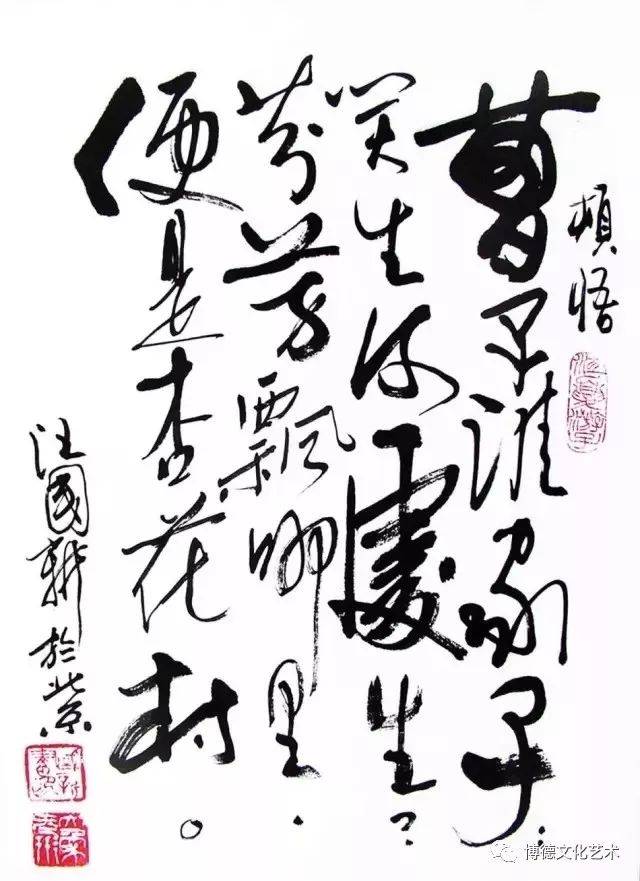 頓悟
曹子誰家子；
笑生何處生？
芬芳飄哪里．
便是杏花村。
汪國新於北京．
博德文化艺术